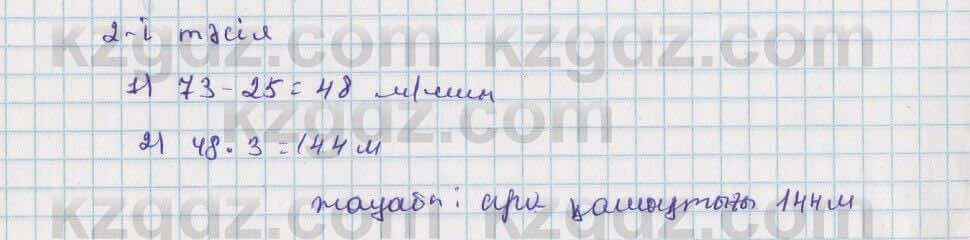 2-і тәсіл
1) 73 - 25 = 48 м/мин
2) 48 · 3 = 144 м
жауабы: ара қашықтығы 144 м
kzgdz.com kzgdz.com
kzgdz.com
kzgdz.com kzgdz.com